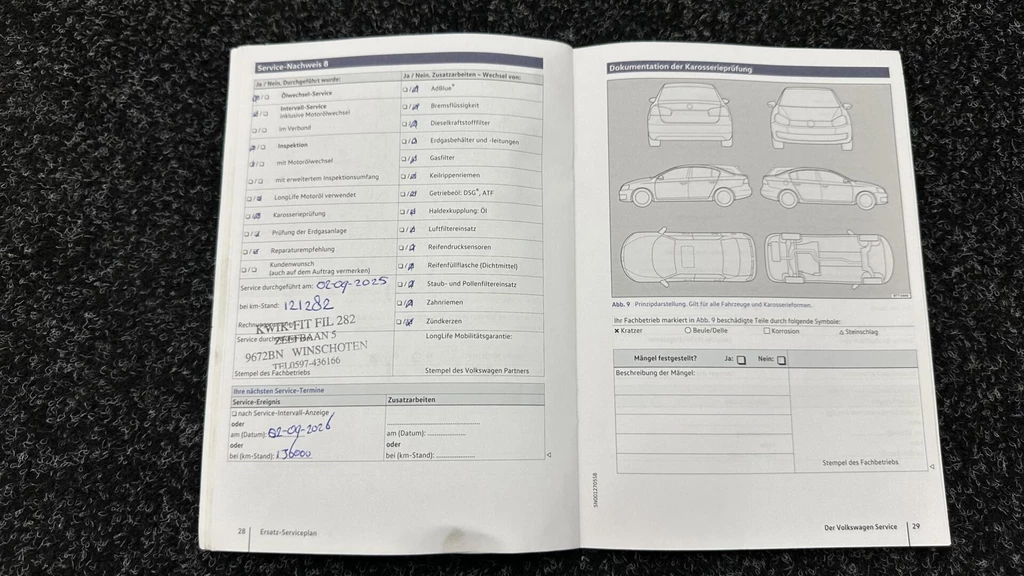 Service-Nachweis 8
Ja / Nein, Durchgeführt wurde:
Ölwechsel-Service
Intervall-Service
inklusive Motorölwechsel
im Verbund
Inspektion
mit Motorölwechsel
mit erweitertem Inspektionsumfang
LongLife Motoröl verwendet
Karosserieprüfung
Prüfung der Erdgasanlage
Reparaturempfehlung
Kundenwunsch
(auch auf dem Auftrag vermerken)
Service durchgeführt am: 02-09-2025
bei km-Stand: 121282
KWIK-FIT FIL 282
Service
ZEEFBAAN 5
9672BN WINSCHOTEN
TEL0597-436166
Stempel des Fachbetriebs
Ja / Nein, Zusatzarbeiten – Wechsel von:
AdBlue®
Bremsflüssigkeit
Dieselkraftstofffilter
Erdgasbehälter und -leitungen
Gasfilter
Keilrippenriemen
Getriebeöl: DSG®, ATF
Haldexkupplung: Öl
Luftfiltereinsatz
Reifendrucksensoren
Reifenfüllflasche (Dichtmittel)
Staub- und Pollenfiltereinsatz
Zahnriemen
Zündkerzen
LongLife Mobilitätsgarantie:
Stempel des Volkswagen Partners
Ihre nächsten Service-Termine
Service-Ereignis
nach Service-Intervall-Anzeige
oder
am (Datum): 02-09-2026
oder
bei (km-Stand): 136000
Zusatzarbeiten
am (Datum):
oder
bei (km-Stand):
28 Ersatz-Serviceplan
Dokumentation der Karosserieprüfung
Abb. 9 Prinzipdarstellung. Gilt für alle Fahrzeuge und Karosserieformen.
Ihr Fachbetrieb markiert in Abb. 9 beschädigte Teile durch folgende Symbole:
× Kratzer ○ Beule/Delle □ Korrosion △ Steinschlag
Mängel festgestellt? Ja: Nein:
Beschreibung der Mängel:
Stempel des Fachbetriebs
Der Volkswagen Service 29